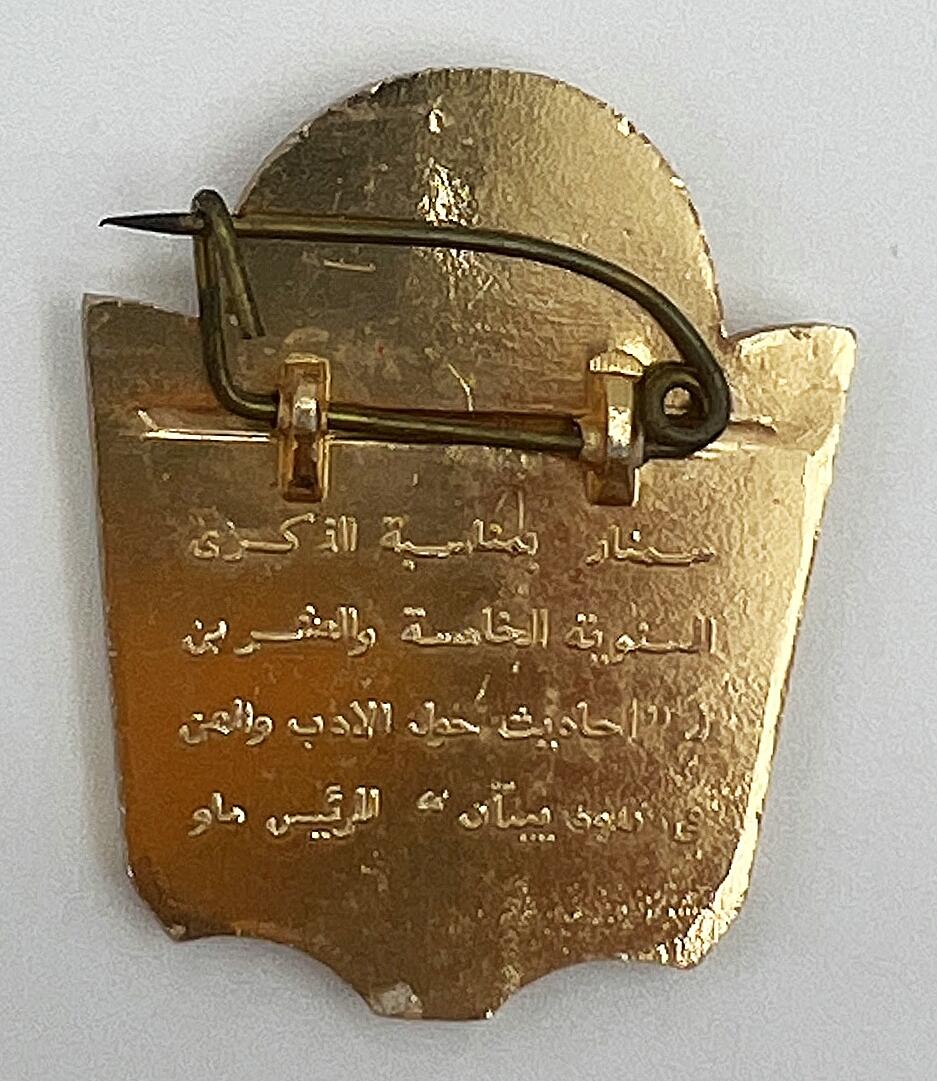 سمنار بمناسبة الذكرى
السنوية الخامسة والعشرين
لـ "احاديث حول الادب والفن
في ندوة ييبآن" للرئيس ماو